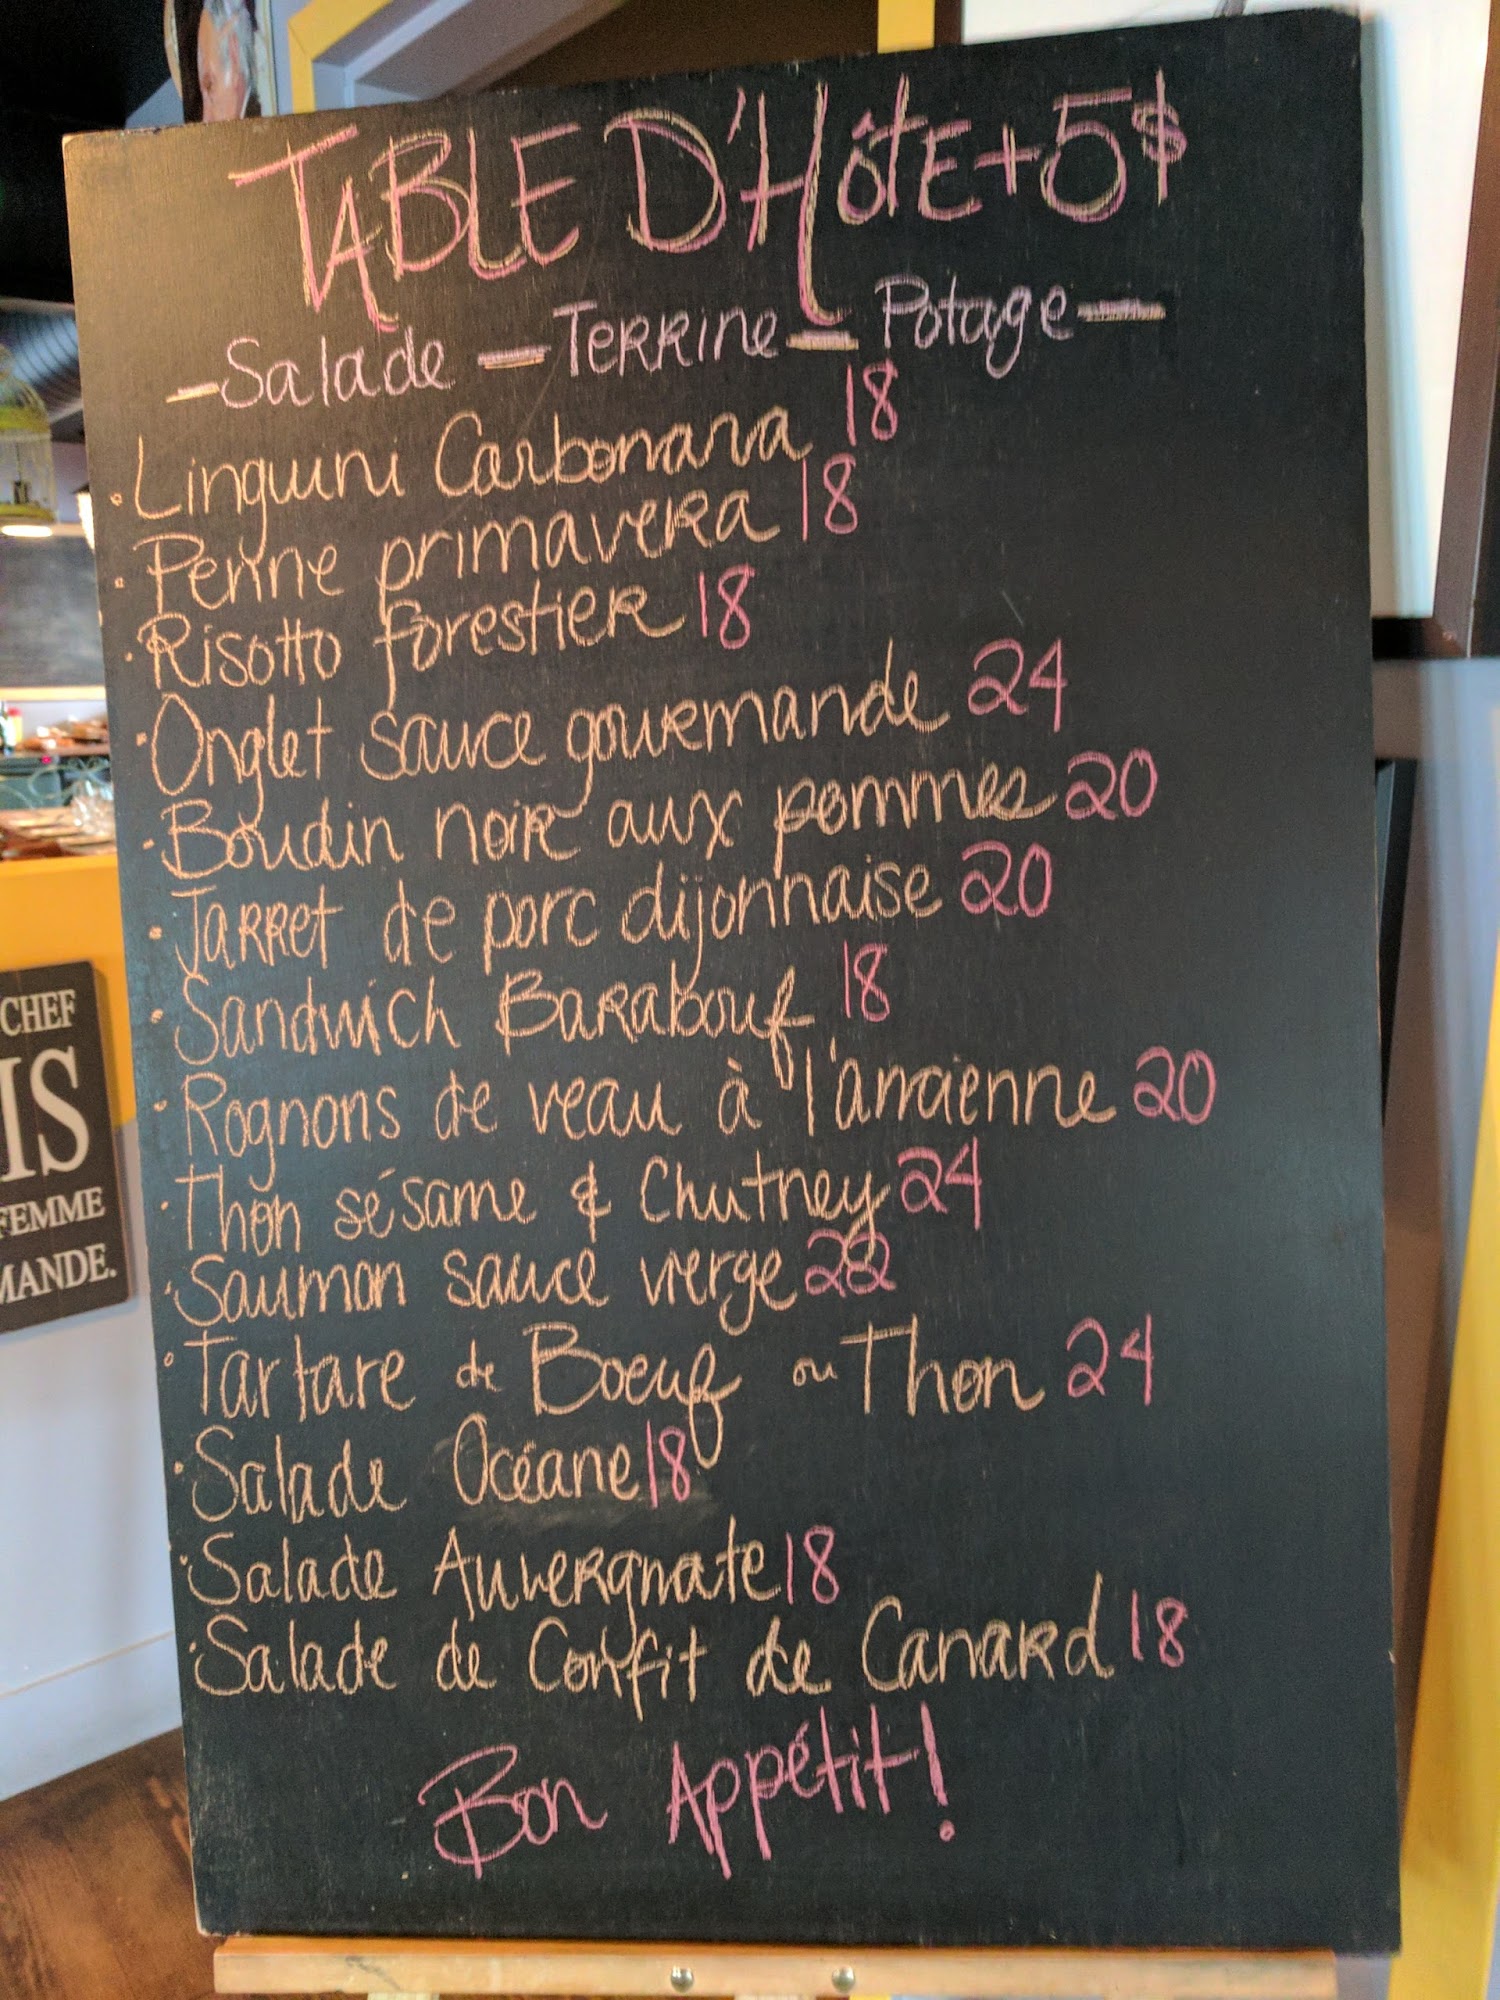 TABLE D'HôTE +5$
- Salade - TERRINE - Potage -
· Linguini Carbonara 18
· Penne primavera 18
· Risotto forestier 18
· Onglet sauce gourmande 24
· Boudin noir aux pommes 20
· Jarret de porc dijonnaise 20
· Sandwich Barabouf 18
· Rognons de veau à l'ancienne 20
· Thon sésame & Chutney 24
· Saumon sauce vierge 22
· Tartare de Boeuf ou Thon 24
· Salade Océane 18
· Salade Auvergnate 18
· Salade de Confit de Canard 18
Bon Appétit!
CHEF
IS
FEMME
MANDE.